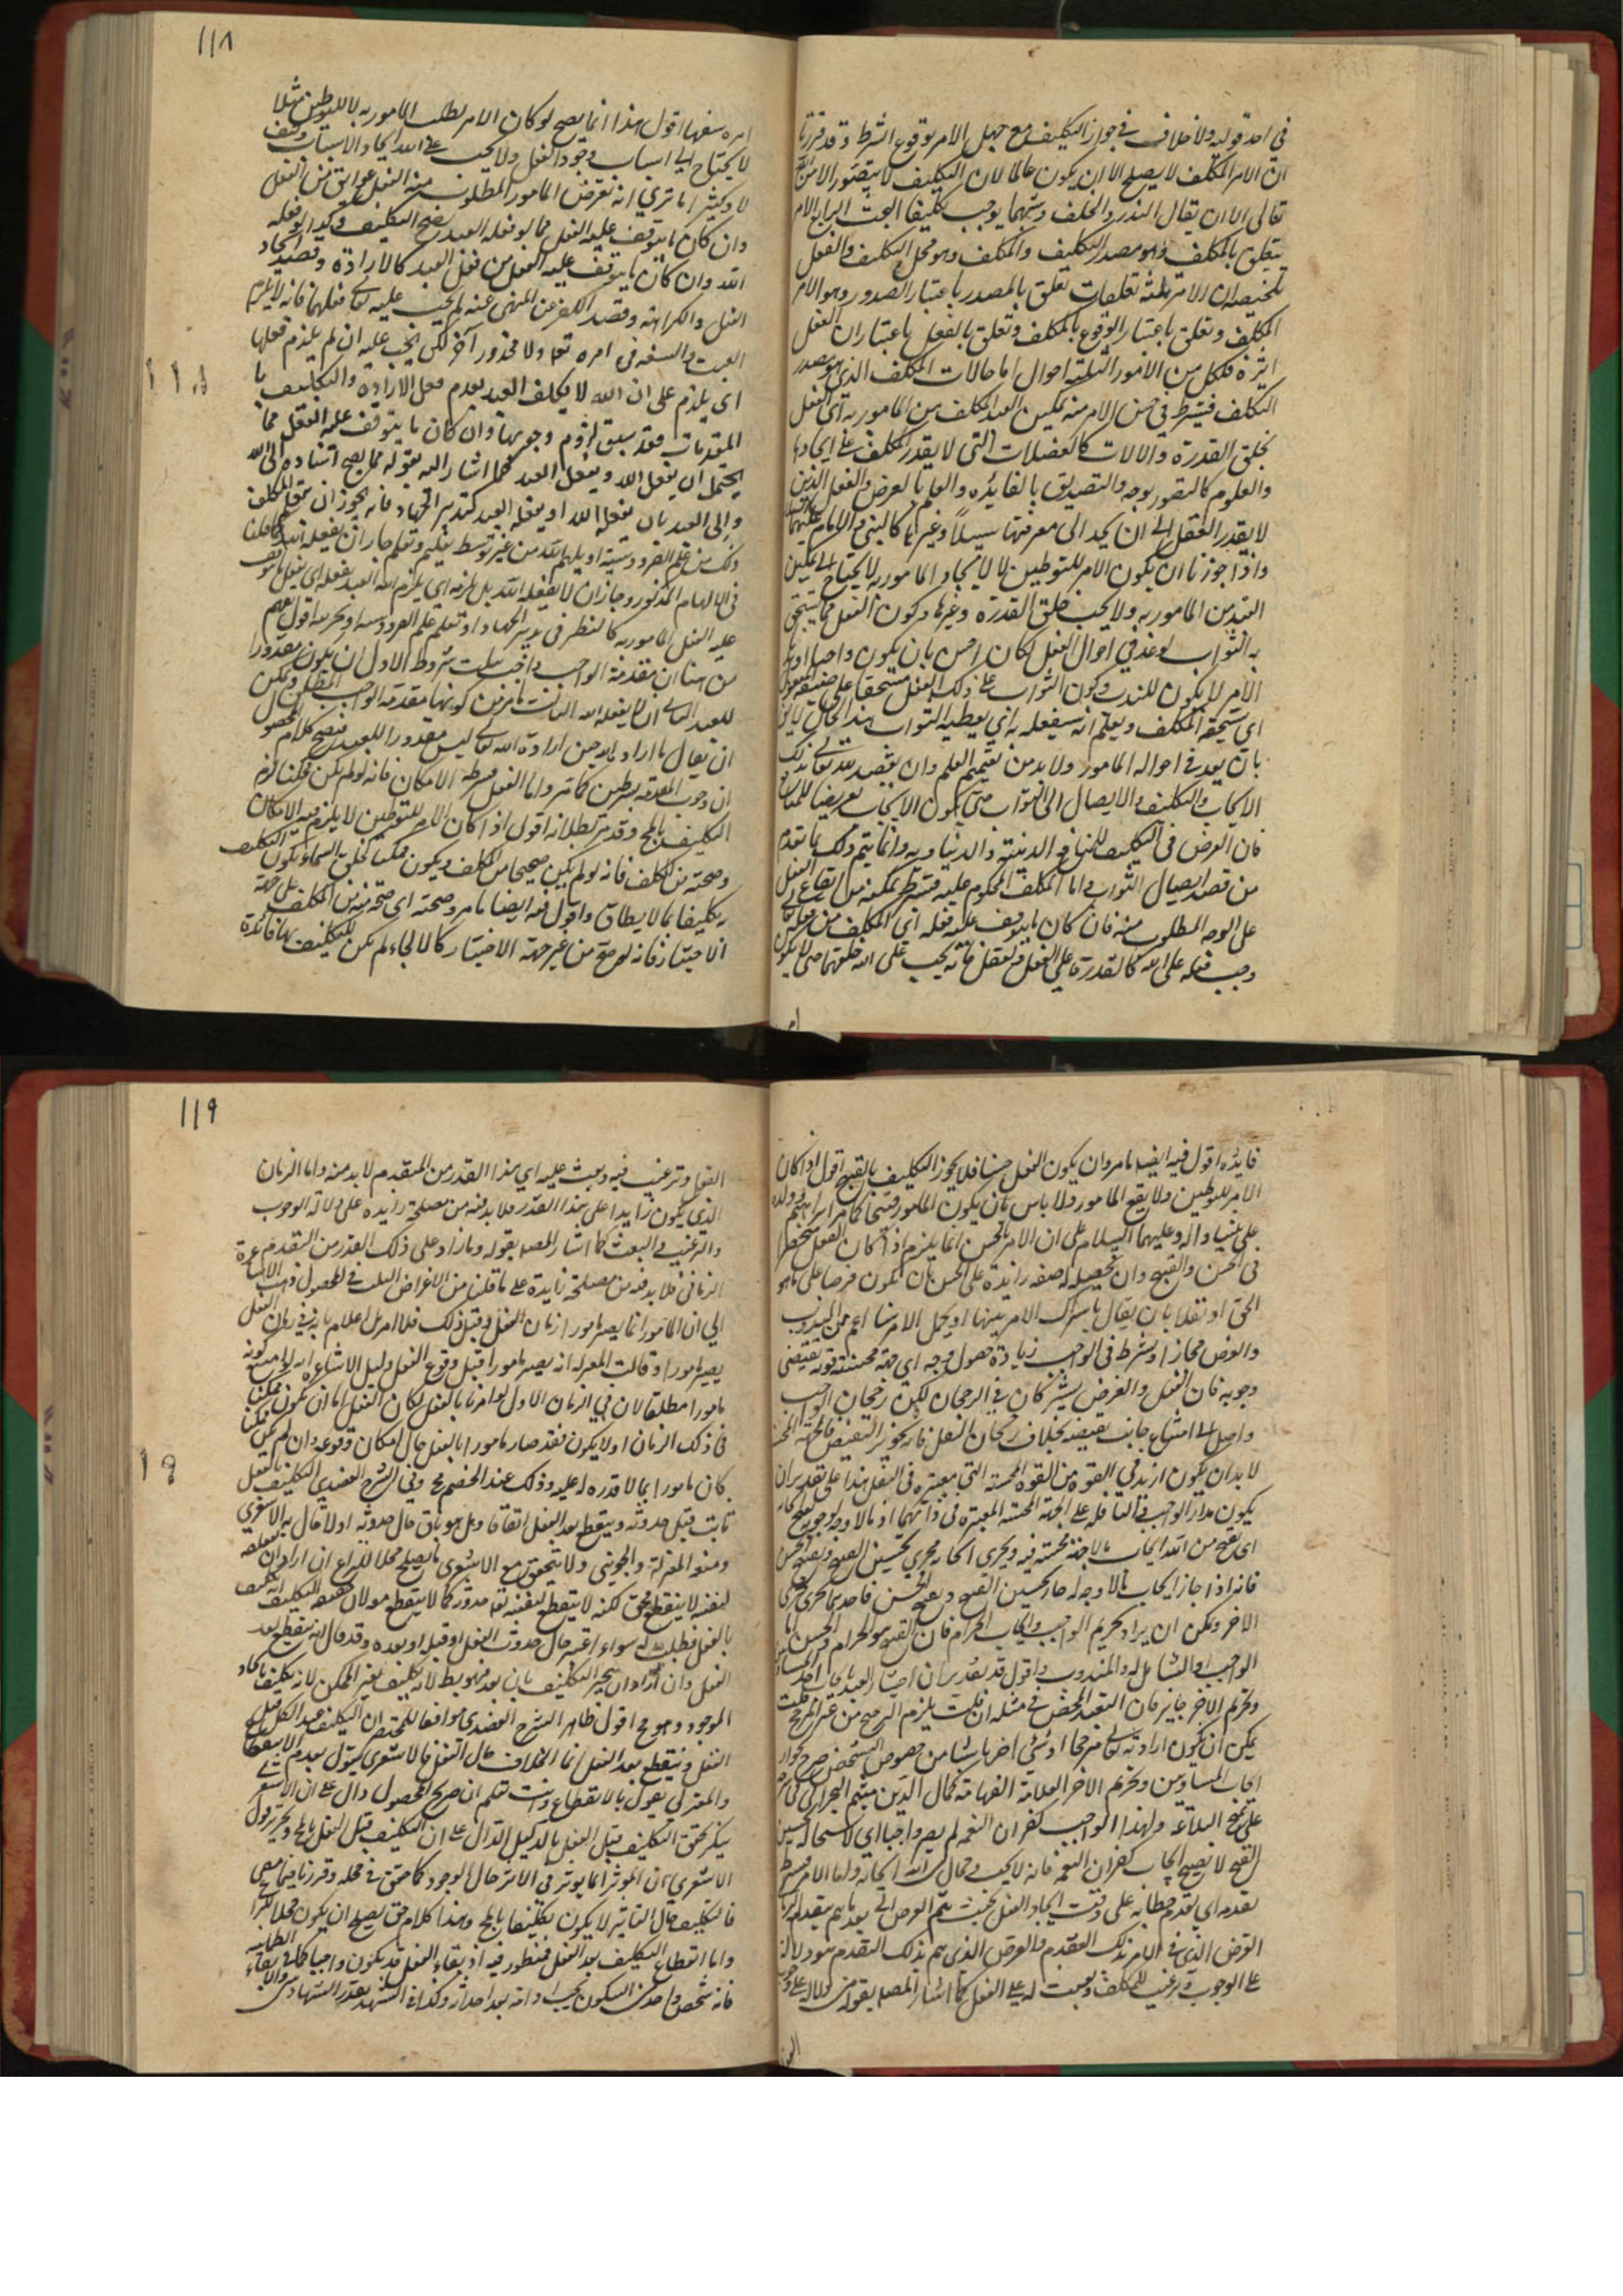 في احد قوليه ولا خلاف في جواز التكليف مع جهل الامر بوقوع الشرط وقد قررنا
ان الامر المكلف لا يصلح الا ان يكون عالما لان التكليف لا يتصور الا من الله
تعالى الا ان يقال النذر والحلف وشبههما يوجب تكليفا البحث الرابع الامر
يتعلق بالمكلف وهو مصدر التكليف والمكلف وهو محل التكليف والفعل
تلخيصه ان للامر ثلثة تعلقات تعلق بالمصدر باعتبار الصدور وهو الامر
المكلف وتعلق باعتبار الوقوع بالمكلف وتعلق بالفعل باعتبار ان الفعل
اثره فلكل من الامور الثلثة احوال اما حالات المكلف الذي هو مصدر
التكلف فيشترط في حسن الامر منه تمكين العبد المكلف من المامور به اي الفعل
بخلق القدرة والالات كالعضلات التي لا يقدر المكلف على ايجادها
والعلوم كالتصور بوجه والتصديق بالفائدة والعلم بالعرض والفعل الذين
لا يقدر العقل الى ان يجد الى معرفتها سبيلا وغيرها كالنبي والامام عليهما
واذا جوزنا ان يكون الامر للتوطين لا لايجاد المامور به لا يحتاج الى تمكين
العبد من المامور به ولا يجب خلق القدرة وغيرها وكون الفعل مما يستحق
به الثواب لو عد في احوال الفعل لكان احسن بان يكون واجبا او ندبا
الامر لا يكون للندب وكون الثواب على ذلك الفعل مستحقا على صيغة المفعول
اي يستحقه المكلف ويعلم انه سيفعله به اي يعطيه الثواب هذا الحال
بان يعد في احواله المامور ولا بد من تعميم العلم وان يقصد الله تعالى بذلك
الايجاب والتكليف والايصال الى الثواب حتى يكون الايجاب تعريضا للمنافع
فان الغرض في التكليف المنافع الدينية والدنياوية وانما يتم ذلك بما تقدم
من قصد ايصال الثواب واما المكلف المحكوم عليه فيشترط تمكنه من ايقاع الفعل
على الوجه المطلوب منه فان كان ما يتوقف عليه فعله اي المكلف من فعل الله
وجب فعله على الله كالقدرة على الفعل والعقل فانه يجب على الله خلقهما حتى لا يكون
١١٨
امره سفها اقول هذا انما يصح لو كان الامر لطلب المامور به لا للتوطين مثلا
لا يحتاج الى اسباب وجود الفعل ولا يجب على الله ايجاد الاسباب وكيف
لا وكثيرا ما ترى انه تعرض المامور المطلوب منه الفعل عوائق من الفعل
وان كان ما يتوقف عليه الفعل مما لو فعله العبد يصح التكليف وكذا لو فعله
الله وان كان ما يتوقف عليه الفعل من فعل العبد كالارادة وقصد ايجاد
الفعل والكراهة وقصد الكف عن المنهى عنه لم يجب عليه تعالى فعلهما فانه لا يلزم
العبث والسفه في امره تعالى ولا محذور آخر لكن يجب عليه ان لم يلزم فعلها
اي يلزم على ان الله لا يكلف العبد بعدم فعل الارادة والتكليف بها
المقدمات وقد سبق لزوم وجوبها وان كان ما يتوقف عليه الفعل مما
يحتمل ان يفعل الله ويفعل العبد كما اشار اليه بقوله مما يصح اسناده الى الله
والى العبد بان يفعله الله او يفعله العبد كتدبير الجهاد فانه يجوز ان يحقق المكلف
في الالهام المذكور وجاز ان لا يفعله الله بل يلزمه اي يلزم الله العبد بفعله
عليه الفعل المامور به كالنظر في تدبير الجهاد او تعلم علم
من هنا ان مقدمة الواجب واجب بثلث شروط الاول ان يكون مقدورا
للعبد الثاني ان لا يفعله الله الثالث كونها مقدمة الواجب المطلق ويمكن
ان يقال ما اراد الله حين ارادة الله تعالى ليس مقدورا للعبد فيصح كلام المحصول
ان وجوب المقدمة بشرطين كما مر واما الفعل فشرطه الامكان فانه لو لم يكن ممكنا لزم
التكليف بالمح وقد مر بطلانه اقول اذا كان الامر للتوطين لا يلزم فيه الامكان
وصحته من المكلف فانه لو لم يكن صحيحا من المكلف ويكون ممكنا كخلق السماء يكون التكليف
به تكليفا بما لا يطاق واقول فيه ايضا ما مر وصحته اي صحته من المكلف على جهة
الاختيار فانه لو صح من غير جهة الاختيار كالالجاء لم يكن للتكليف بها فائدة
فايدة اقول فيه ايضا ما مر وان يكون الفعل حسنا فلا يجوز التكليف بالقبيح اقول اذا كان
الامر للتوطين ولا يقع المامور ولا باس بان يكون المامور قبيحا كما مر ابراهيم وولده
على نبينا واله وعليهما السلام على ان الامر بالحسن انما يلزم اذا كان الفعل منحصرا
في الحسن والقبيح وان تحصيله له صفة زائدة على الحسن بان يكون فرضا على ما هو
الحق او نفلا بان يقال باشتراك الامر بينهما او يحمل الامر هنا اعم من المندوب
والفرض مجازا ويشترط في الواجب زيادة حصول وجه اي جهة محسنة قوية تقتضي
وجوبه فان النفل والفرض يشتركان في الرجحان لكن رجحان الواجب
واصل الى امتناع جانب نقيضه بخلاف رجحان النفل فانه يجوز النقيض فالجهة المحسنة
لا بد ان يكون ازيد في القوة من القوة المحسنة التي معتبرة في النفل هذا على تقدير ان
يكون مدار الواجب والنافلة على الجهة المحسنة المعتبرة في ذاتهما اذ ما لا وجه لوجوبه يقبح ايجابه
اي يقبح من الله ايجاب ما لا جهة محسنة فيه ويجرى ايجابه مجرى تحسين القبيح وتقبيح الحسن
فانه اذا جاز ايجاب ما لا وجه له جاز تحسين القبيح وتقبيح الحسن فاحدهما يجرى مجرى
الاخر ويمكن ان يراد تحريم الواجب وايجاب الحرام فان القبيح هو الحرام والحسن اما
الواجب او الشامل له والمندوب واقول قد تقرر ان اختبار العبد بايجاب احد المتساويين
وتحريم الاخر جايز فان التعبد المحض في مثله ان قلت يلزم الترجيح من غير المرجح قلت
يمكن ان يكون ارادته تعالى مرجحا او شئ اخر ناشيا من خصوص الشخص صرح بجواز
ايجاب المتساويين وتحريم الاخر العلامة الفهامة كمال الدين ميثم البحراني في شرحه
على نهج البلاغة ولهذا الواجب كفران النعمة لم يصر واجبا اي لاستحالة تحسين
القبح لا يصح ايجاب كفران النعمة فانه لا يجب وحال من الله ايجابه واما الامر فيشترط
تقدمه اي تقدم خطابه على وقت ايجاد الفعل بحيث يتم الغرض
الغرض الذي في الامر بذلك التقدم والغرض الذي يتم بذلك التقدم هو دلالة
على الوجوب وترغيب للمكلف وبعث له على الفعل كما اشار المصـ بقوله من دلالة على وجوب
١١٩
الفعل وترغيب فيه وبعث عليه اي هذا القدر من المتقدم لا بد منه واما الزمان
الذي يكون زايدا على هذا القدر فلا بد فيه من مصلحة زايدة على دلالة الوجوب
والترغيب والبعث كما اشار المصـ بقوله وما زاد على ذلك القدر من التقدم
الزماني فلا بد فيه من مصلحة زايدة على ما قلنا من الاغراض الثلث في المحصول ذهب الاشاعرة
الى ان المامور انما يصير مامورا زمان الفعل وقبل ذلك فلا امر بل اعلام بانه في زمان الفعل
يصير مامورا وقالت المعتزلة انه يصير مامورا قبل وقوع الفعل دليل الاشاعرة انه لو امتنع كونه
مامورا مطلقا لان في الزمان الاول لو امرنا بالفعل لكان الفعل اما ان يكون ممكنا
في ذلك الزمان اولا يكون فقد صار مامورا بالفعل حال امكان وقوعه وان لم يكن ممكنا
كان مامورا بما لا قدرة له عليه وذلك عند الخصم مح وفي الشرح العضدي التكليف بالفعل
ثابت قبل حدوثه وينقطع بعد الفعل اتفاقا وهل هو باق حال حدوثه اولا قال به الاشعري
ومنعه المعتزلة والجويني ولا يتحقق مع الاشعري ما يصلح محلا للنزاع ان اراد ان تعلقه
لنفسه لا ينقطع فحق لكنه لا ينقطع لنفسه بعد حدوثه كما لا ينقطع
بالفعل فطلب له سواء اعتبر حال حدوث الفعل او قبله او بعده وقد قال انه ينقطع بعد
الفعل وان اراد ان تنجيز التكليف باق بعد فهو بط لانه تكليف بغير الممكن لانه تكليف بايجاد
الموجود وهو مح اقول ظاهر الشرح العضدي موافقا للمختصر ان التكليف عند الكل قبل
الفعل وينقطع بعد الفعل انما الخلاف حال الفعل فالاشعري يقول بعدم الانقطاع
والمعتزلي يقول بالانقطاع وانت تعلم ان صريح المحصول دال على ان الاشعري
ينكر تحقق التكليف قبل الفعل بالدليل الدال على ان التكليف قبل الفعل بالمح وتحرير قول
الاشعري ان المؤثر انما يؤثر في الاثر حال الوجود كما حقق في محله وقررنا فيما مضى
فالتكليف حال التاثير لا يكون تكليفا بالمح وهذا كلام حق يصلح ان يكون محلا للنزاع
واما انقطاع التكليف بعد الفعل فمنظور فيه اذ بقاء الفعل قد يكون واجبا كما في بقاء
فانه شخص واحد من السكون يجب ادامته بعد احداثه وكذا في التشهد بقدر الشهادتين